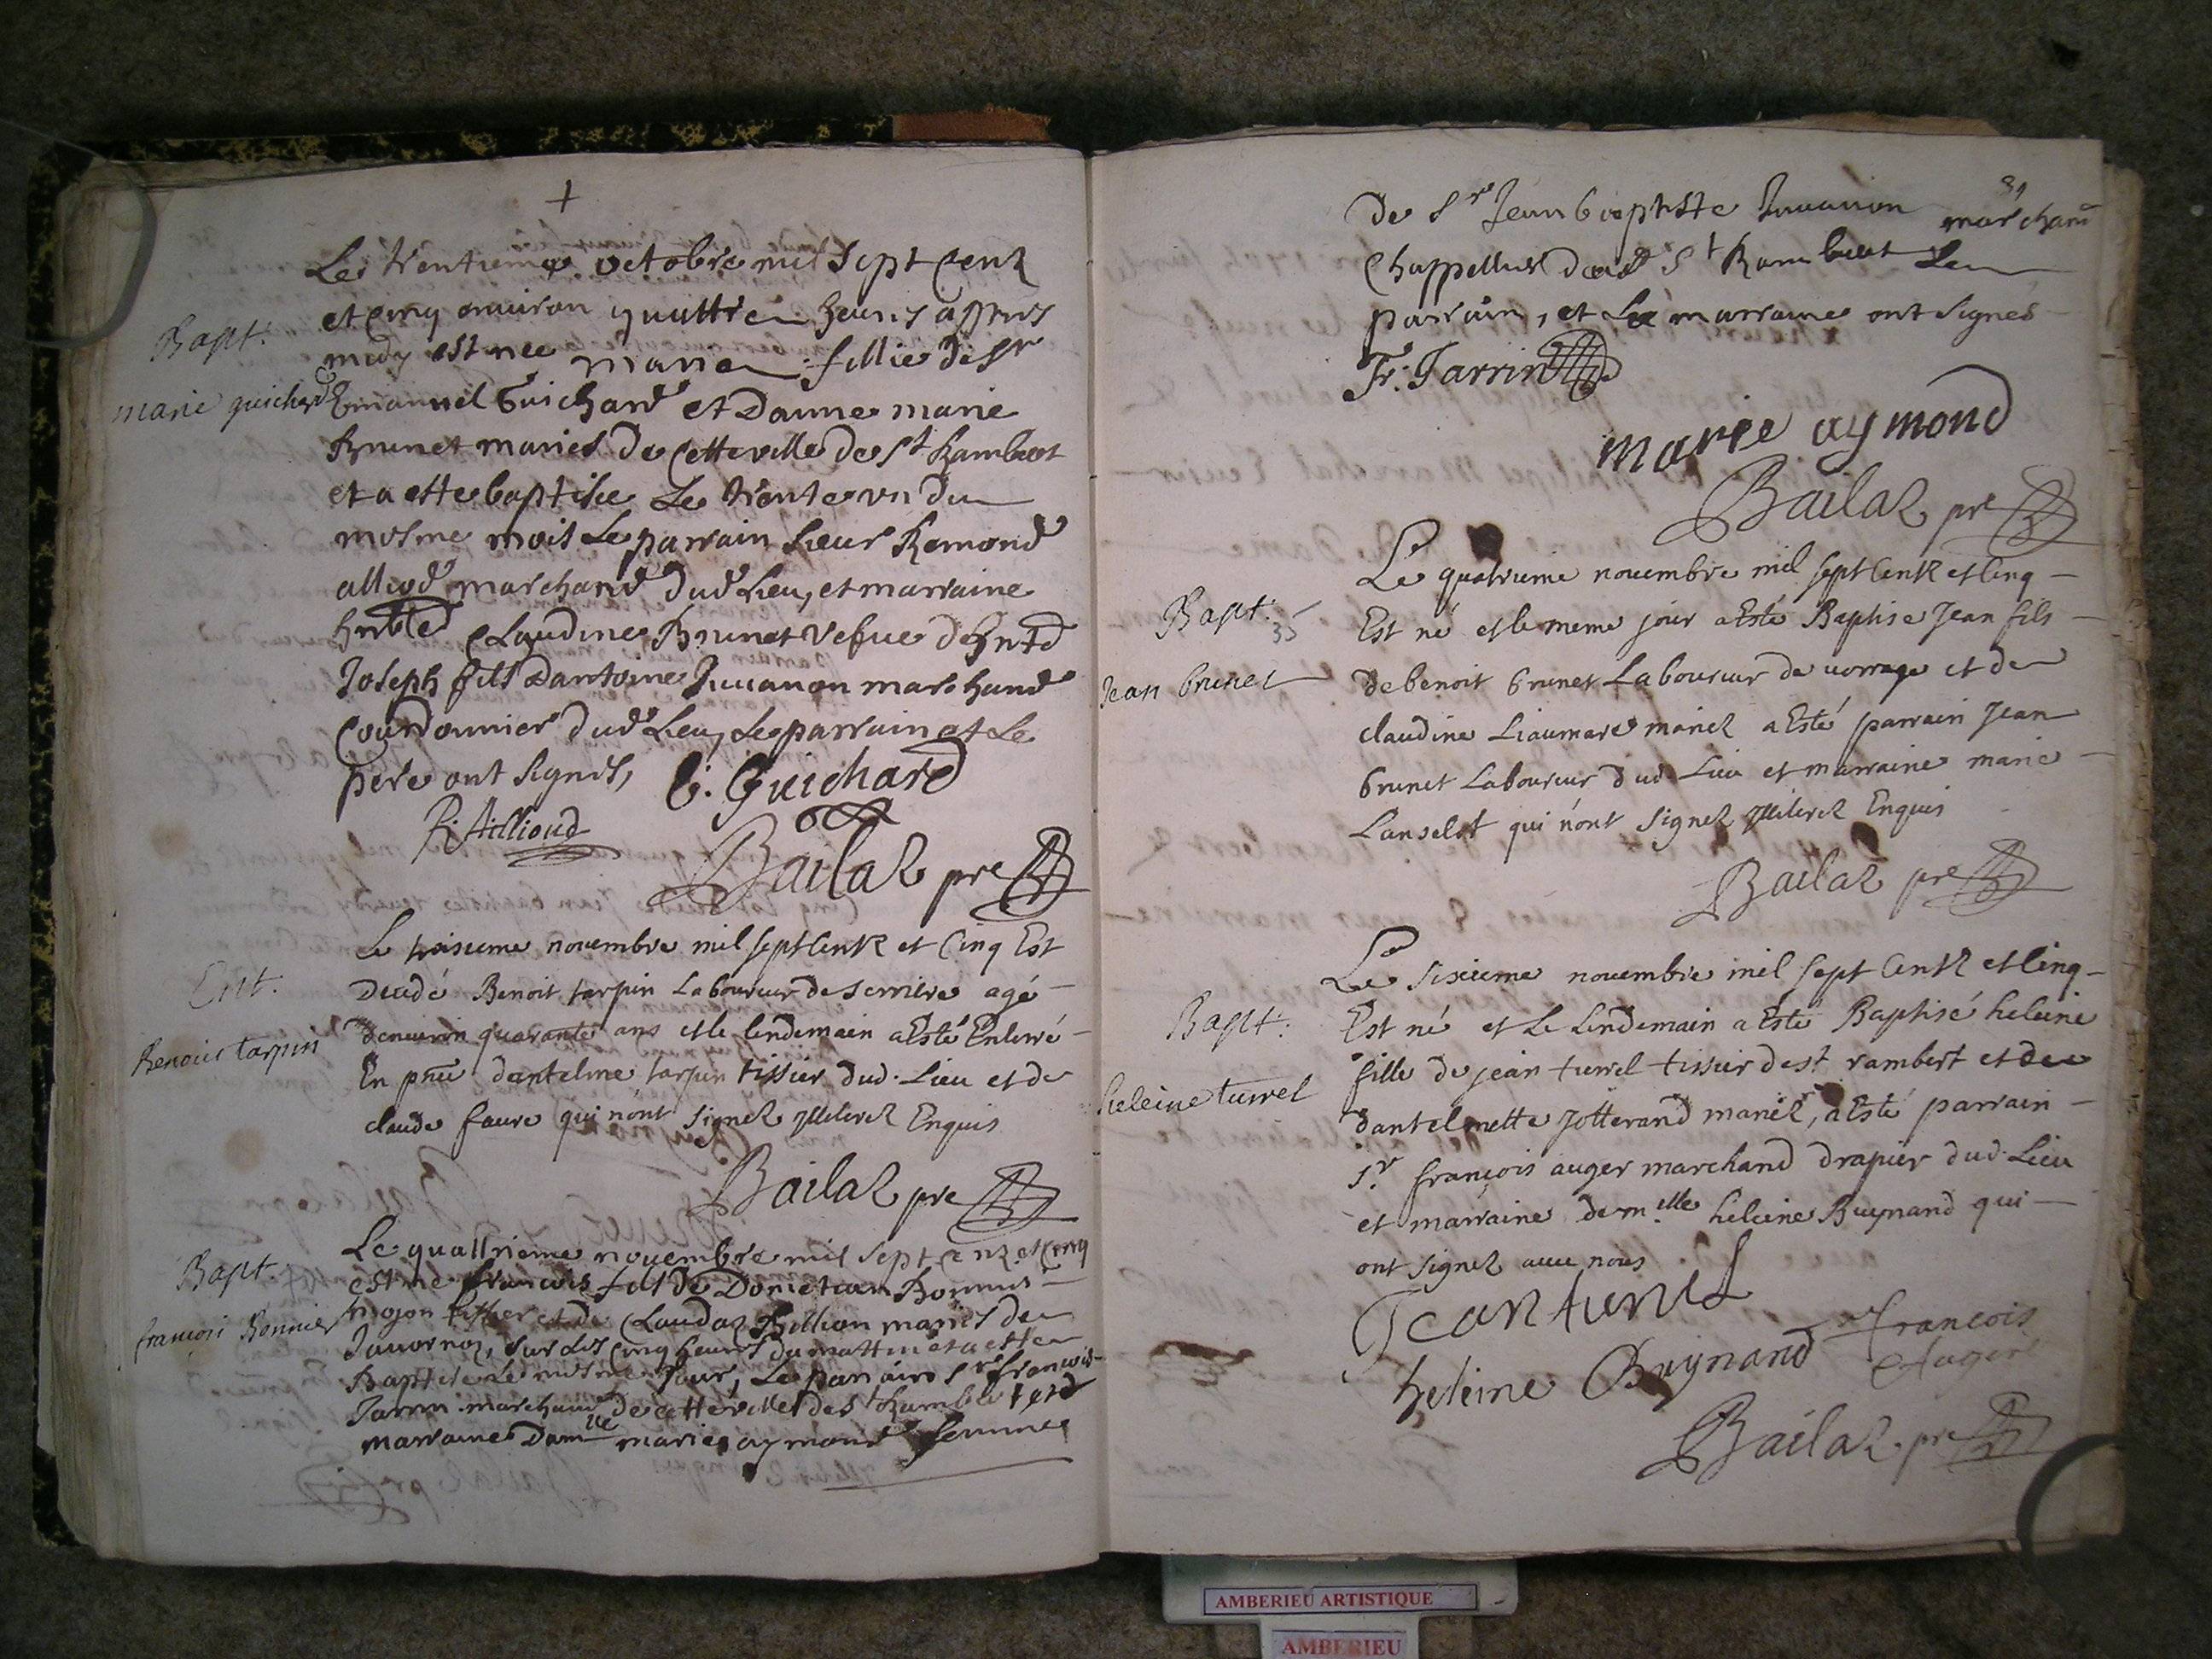 +
Le trentieme octobre mil sept Cent
et Cinq environ quattre heures appres
midy est nee marie fillie de Sr
Emanuel Guichard et Danne marie
Brunet mariés de Cette ville de St Rambert
et a ette baptisée Le trente un du
mesme mois Le parrain sieur Remond
alliod marchand dud Lieu, et marraine
hnble Claudine Brunet vefue d'hnte
Joseph fils Dantoine Juuanon marchand
Courdonnier dud Lieu, Le parrain et Le
pere ont signes,
E. Guichard
R. Ailliond
Bailaz pre
Bapt.
marie guichard
Le troisieme nouembre mil sept Centz et Cinq Est
Decedé Benoit tarpin Laboureur de serriere agé
denuiron quarante ans et le lendemain a Esté Enterré
En pnce dantelme tarpin tissier dud. Lieu et de
claude faure qui n'ont signez Illiterez Enquis
Bailaz pre
Ent.
Benoit tarpin
Le quattrieme nouembre mil sept Centz et Cinq
est ne francois fils de Bonnier
mojon tissier et de Claudaz Billion mariés de
Jauornoz, sur les Cinq heures du mattin et a ette
Baptise Le mesme Jour, Le parrain Sr francois
Jarrin marchand de cette ville de St Rambert et
marraine Damlle marie aymond femme
Bapt.
françois Bonnier
31
de Sr Jean baptiste Juuanon marchand
Chappellier dud St Rambert Le
parrain, et La marraine ont signés
Fr. Jarrin
marie aymond
Bailaz pre
Le quatrieme nouembre mil sept Centz et Cinq
Est né et le meme jour a Esté Baptisé Jean fils
de benoit brunet Laboureur de vorrage et de
claudine Liaumare mariez a Esté parrain Jean
brunet Laboureur dud. Lieu et marraine marie
Lanselot qui n'ont signez Illiterez Enquis
Bailaz pre
Bapt.
35
Jean brunet
Le sixieme nouembre mil sept Centz et Cinq
Est né et Le Lendemain a Esté Baptisé heleine
fille de jean turrel tissier de st. rambert et de
dantelmette Jotterand mariez, a Esté parrain
sr. françois auger marchand drapier dud. Lieu
et marraine demlle heleine Buynand qui
ont signez auec nous
Jean turrel
heleine Buynand
francois
Auger
Bailaz pre
Bapt.
heleine turrel
AMBERIEU ARTISTIQUE
AMBERIEU